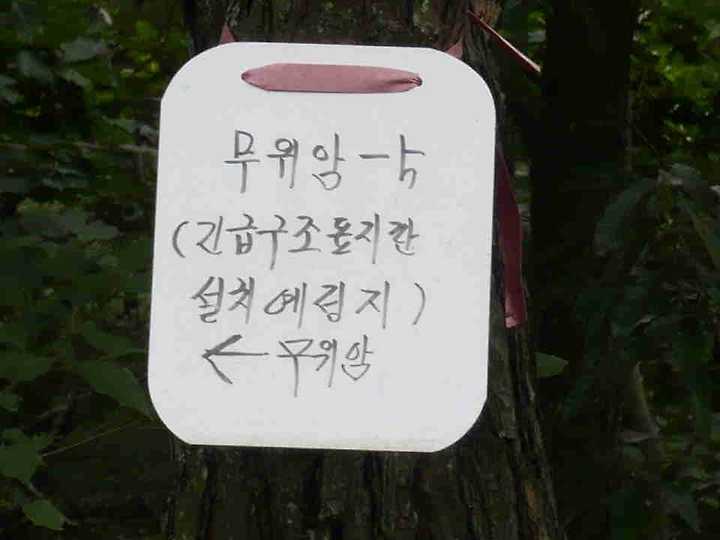 무위암-4
(긴급구조표지판
설치예정지)
← 무위암